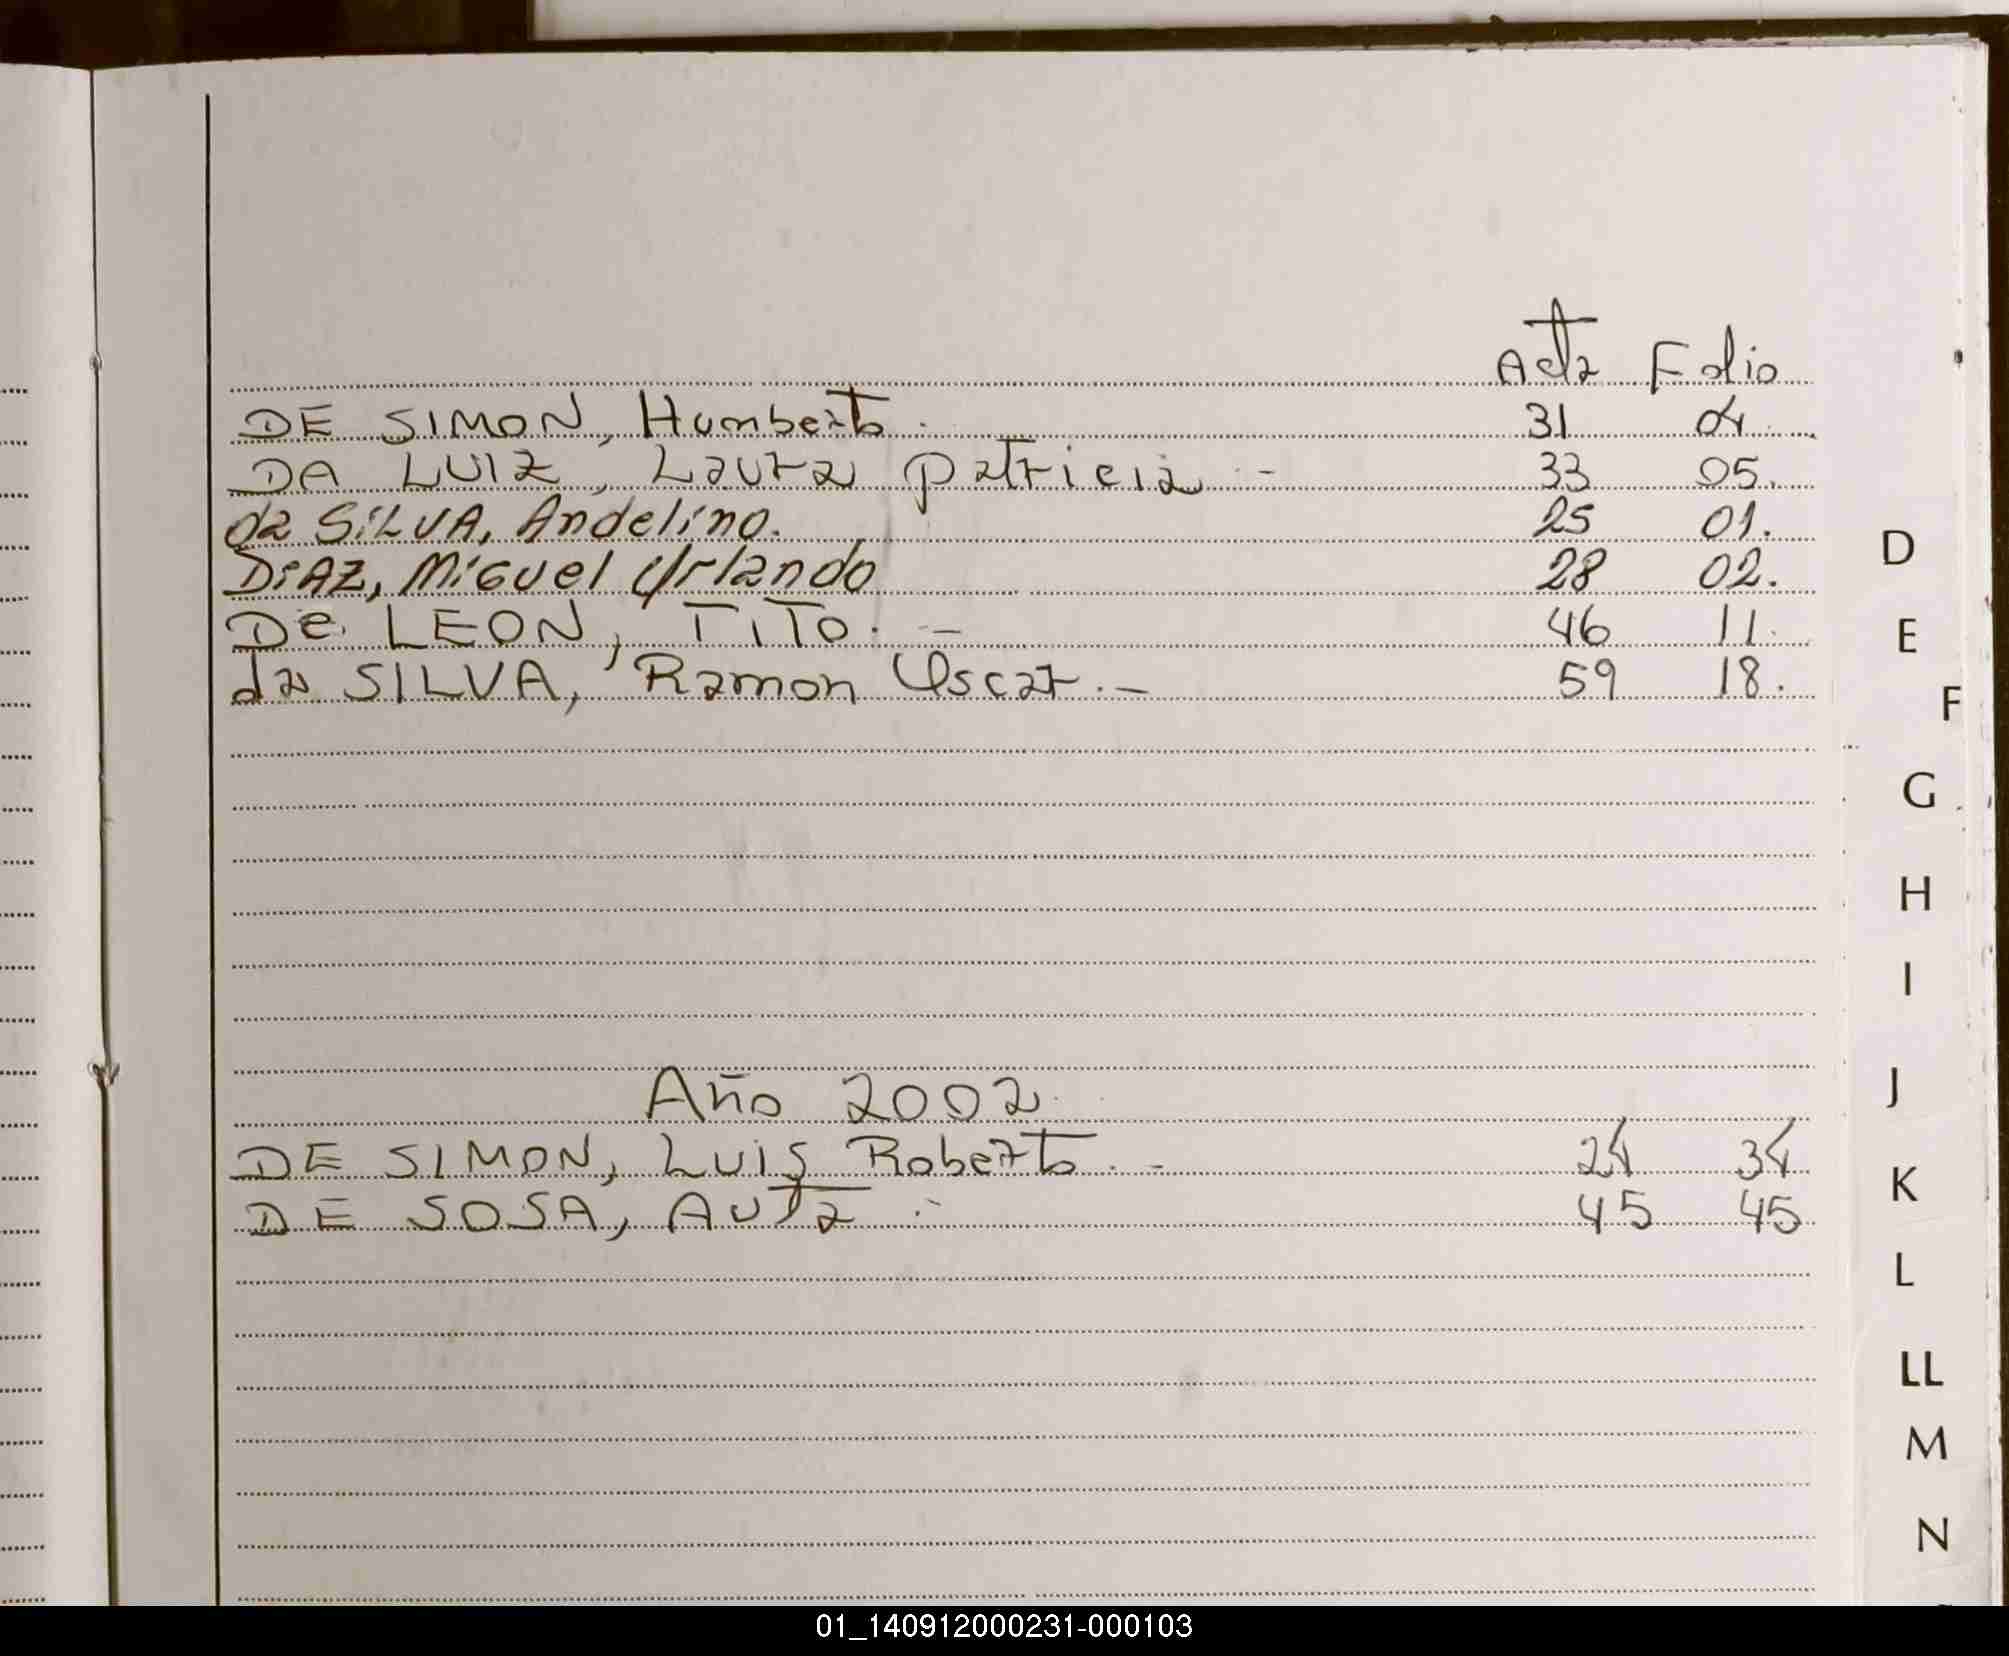 Acta Folio
DE SIMON, Humberto. 31 04
DA LUIZ, Laura Patricia - 33 05.
da SiLVA, Andelino. 25 01.
DiAZ, MiGuel Orlando 28 02.
De LEON, TITO. - 46 11.
da SILVA, Ramon Oscar.- 59 18.
Año 2002
DE SIMON, LUIS Roberto.- 24 34
DE SOSA, AUTA .- 45 45
D
E
F
G
H
I
J
K
L
LL
M
N
01_140912000231-000103